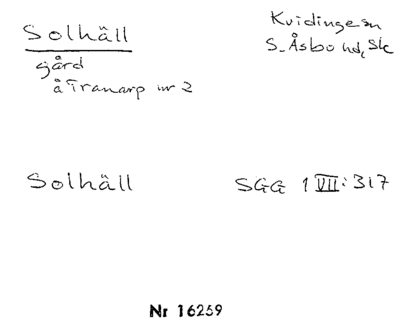 Solhäll
Kvidinge sn
S. Åsbo hd, Sk
gård
å Tranarp nr 2
Solhäll
SGG 1 VII: 317
Nr 16259